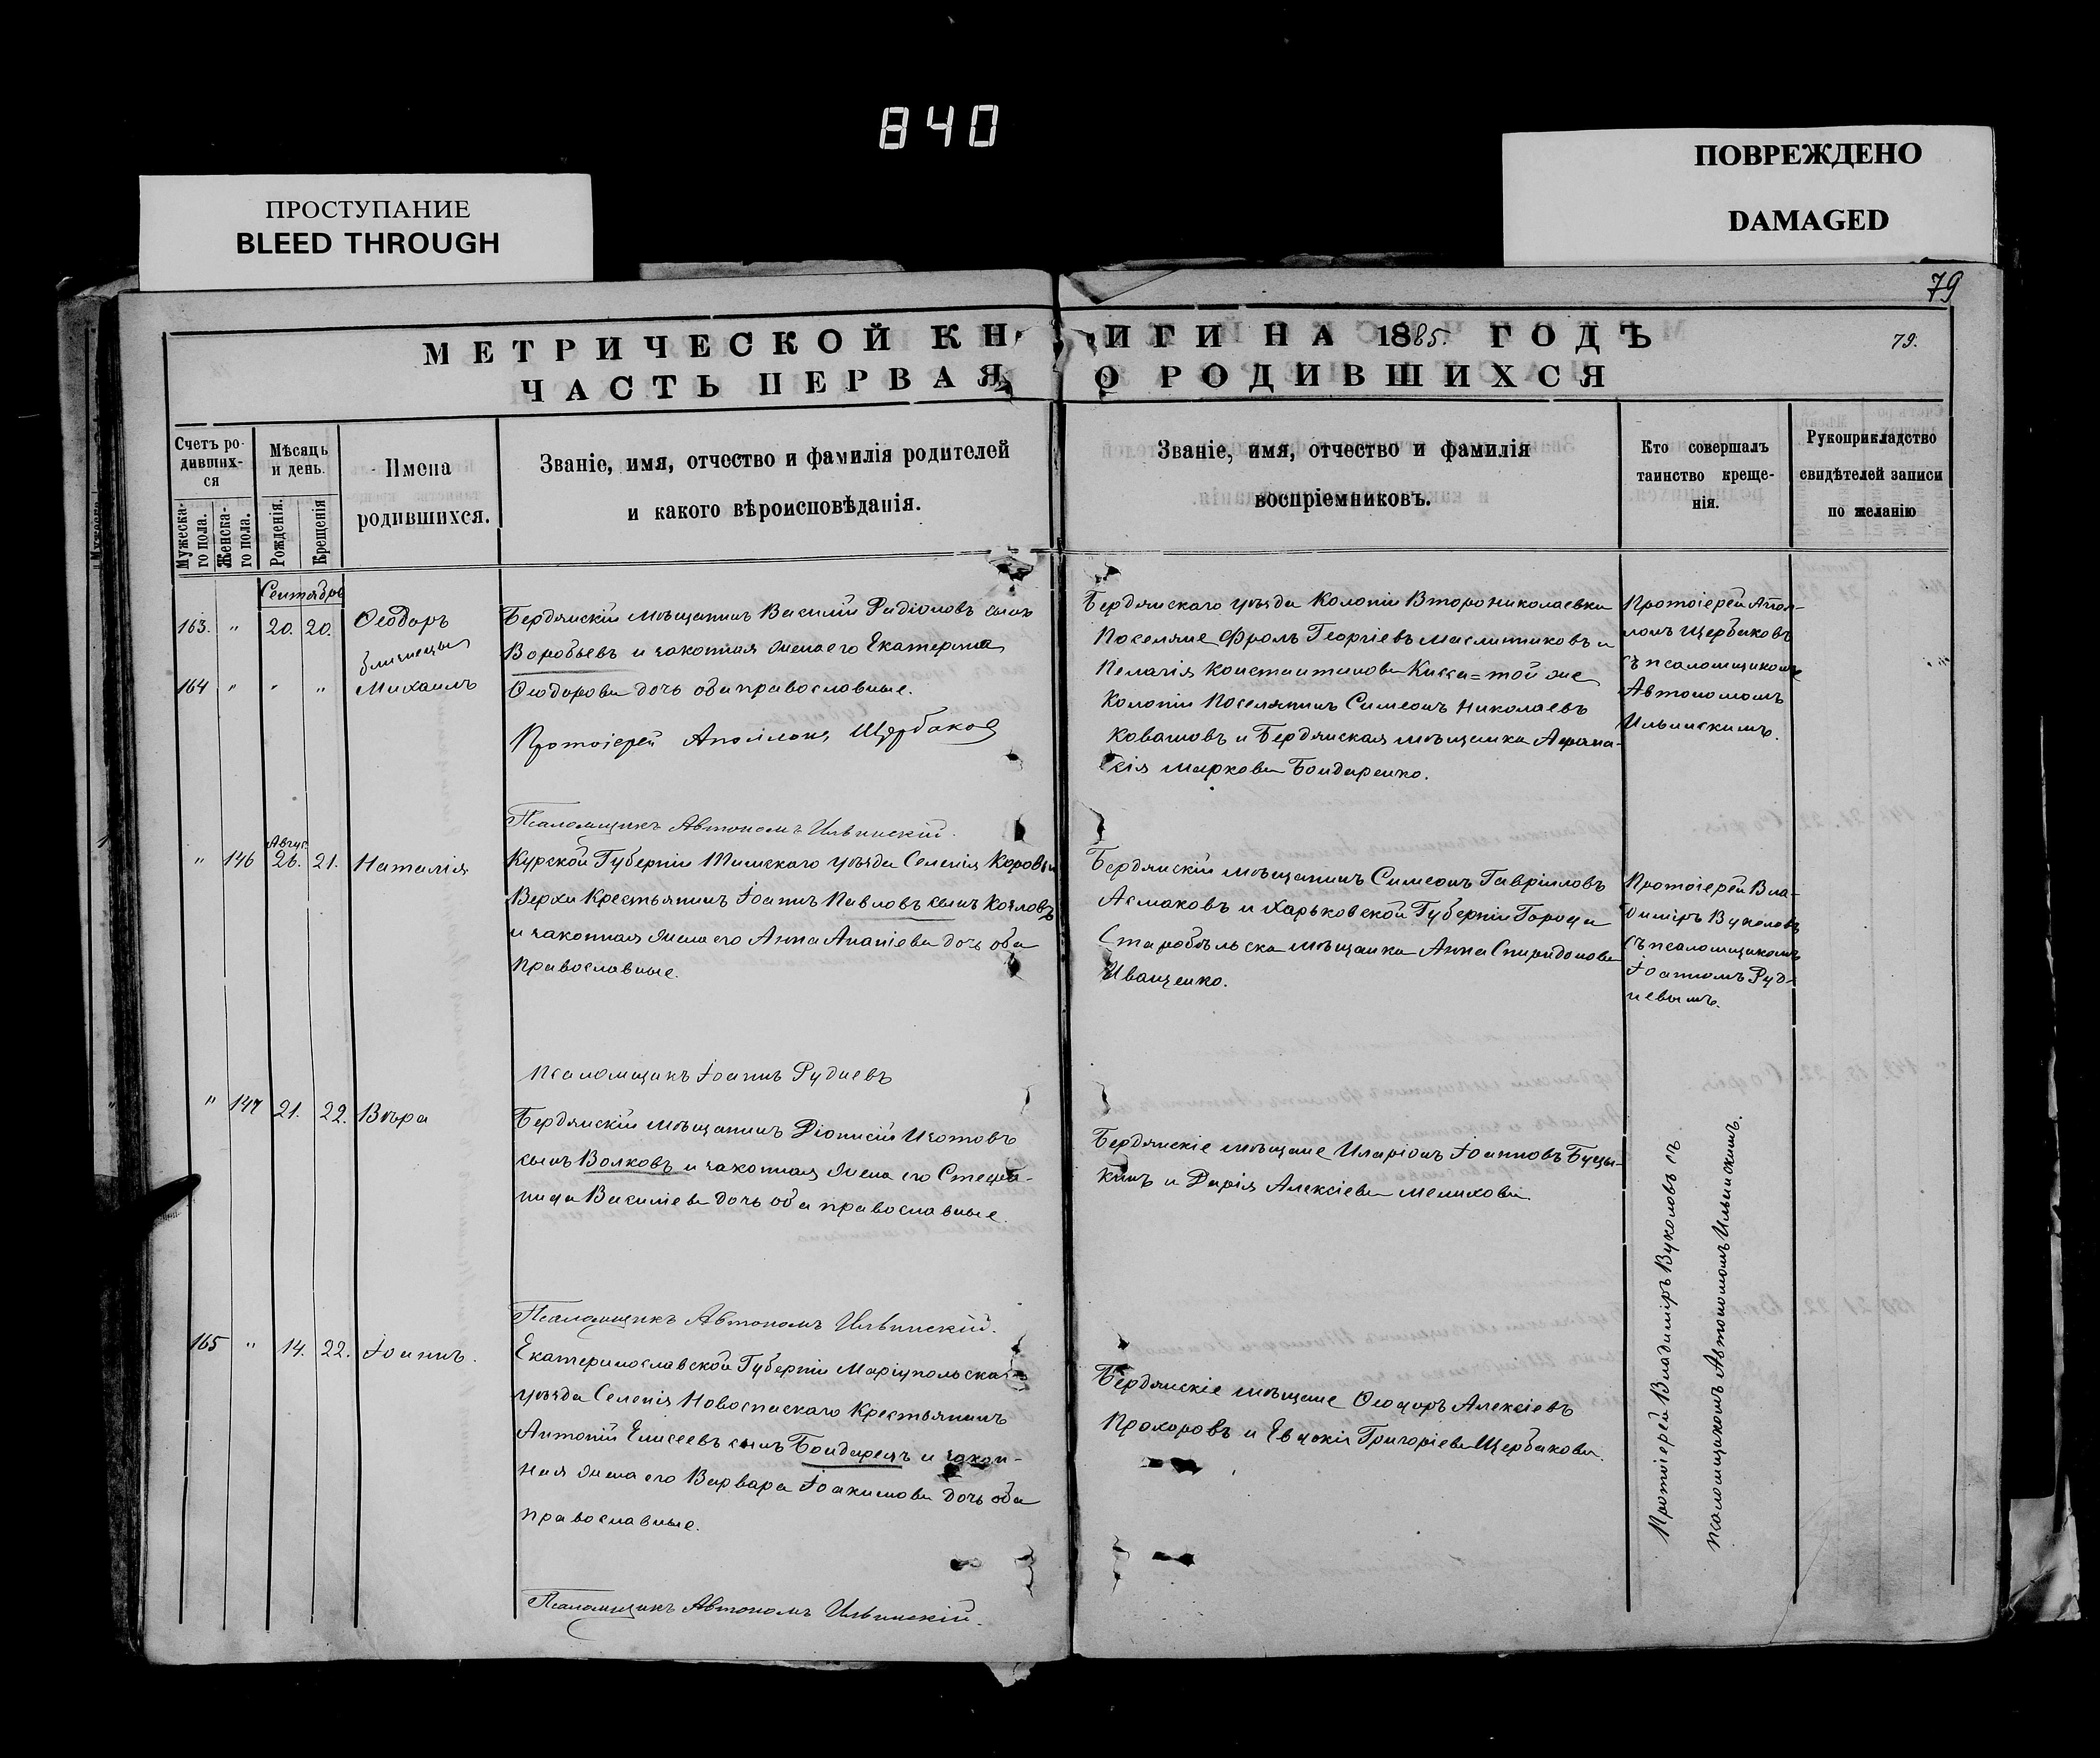 840
ПРОСТУПАНИЕ
BLEED THROUGH
ПОВРЕЖДЕНО
DAMAGED
79
МЕТРИЧЕСКОЙ КНИГИ НА 1885. ГОДЪ
79.
ЧАСТЬ ПЕРВАЯ О РОДИВШИХСЯ
Счетъ ро-
дивших-
ся
Мужеска-
го пола.
Женска-
го пола.
Мѣсяць
и день.
Рожденія.
Крещенія
Имена
родившихся.
Званіе, имя, отчество и фамилія родителей
и какого вѣроисповѣданія.
Званіе, имя, отчество и фамилія
воспріемниковъ.
Кто совершалъ
таинство креще-
нія.
Рукоприкладство
свидѣтелей записи
по желанію
Сентябрь
163. " 20. 20. Ѳеодоръ
близнецы
164 " " " Михаилъ
Бердянскій мѣщанинъ Василій Радіоновъ сынъ
Воробьевъ и законная жена его Екатерина
Ѳеодорова дочь оба православные.
Протоіерей Аполлонъ Щербаковъ
Псаломщикъ Автономъ Ильинскій.
Бердянскаго уѣзда Колоніи Второниколаевки
Поселяне Фролъ Георгіевъ Маслинниковъ и
Пелагія Константинова Кисса=той же
Колоніи Поселянинъ Симеонъ Николаевъ
и Бердянская мѣщанка Афана-
сія Маркова Бондаренко.
Протоіерей Апол-
лонъ Щербаковъ
съ псаломщикомъ
Автономомъ
Ильинскимъ.
Авгус.
" 146 26. 21. Наталія
Курской Губерніи Тимскаго уѣзда Селенія Коровьи
Верхи Крестьянинъ Іоаннъ Павловъ сынъ Козловъ
и законная жена его Анна Ананіева дочь оба
православные.
Псаломщикъ Іоаннъ Рудневъ
Бердянскій мѣщанинъ Симеонъ Гавріиловъ
Асмаковъ и Харьковской Губерніи Города
Старобѣльска мѣщанка Анна Спиридонова
Иващенко.
Протоіерей Вла-
диміръ Вуколовъ
съ псаломщикомъ
Іоанномъ Руд-
невымъ.
" 147 21. 22. Вѣра
Бердянскій мѣщанинъ Діонисій Изотовъ
сынъ Волковъ и законная жена его Стефа-
нида Василіева дочь оба православные.
Псаломщикъ Автономъ Ильинскій.
Бердянскіе мѣщане Иларіонъ Іоанновъ Буцы-
кинъ и Дарія Алексіева Мелихова
165 " 14. 22. Іоаннъ.
Екатеринославской Губерніи Маріупольскаго
уѣзда Селенія Новоспаскаго Крестьянинъ
Антоній Елисеевъ сынъ Бондарецъ и закон-
ная жена его Варвара Іоакимова дочь оба
православные.
Псаломщикъ Автономъ Ильинскій.
Бердянскіе мѣщане Ѳеодоръ Алексіевъ
Прохоровъ и Евдокія Григоріева Щербакова.
Протоіерей Владиміръ Вуколовъ съ
псаломщикомъ Автономомъ Ильинскимъ.